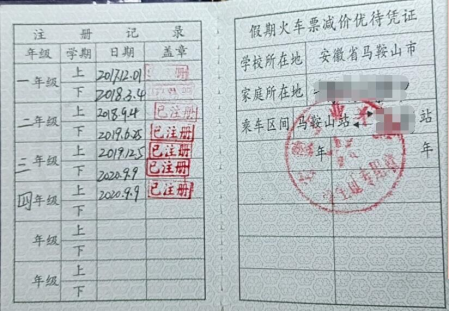 注 册 记 录
年级 学期 日期 盖章
一年级 上 2017.12.01 册
下 2018.3.4
二年级 上 2018.9.4 已注册
下 2019.6.25 已注册
三年级 上 2019.12.5 已注册
下 2020.9.9 已注册
四年级 上 2020.9.9 已注册
下
年级 上
下
年级 上
下
假期火车票减价优待凭证
学校所在地 安徽省马鞍山市
家庭所在地
乘车区间 马鞍山站 站
年 年
业
学生 专用章